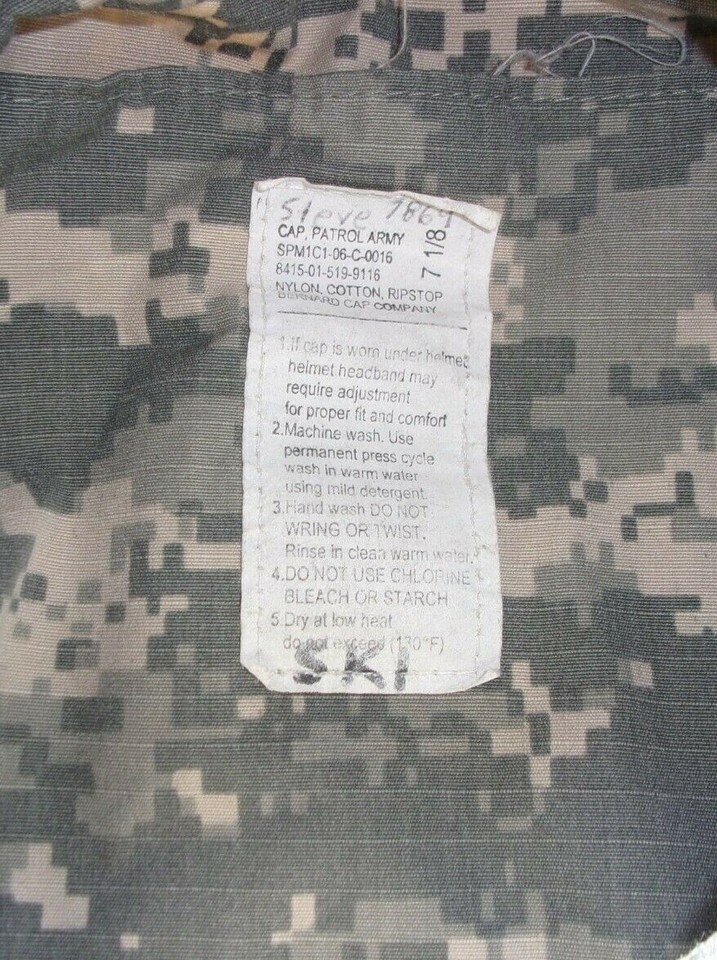 Steve 7869
CAP, PATROL ARMY
7 1/8
SPM1C1-06-C-0016
8415-01-519-9116
NYLON, COTTON, RIPSTOP
BERNARD CAP COMPANY
1.If cap is worn under helmet
helmet headband may
require adjustment
for proper fit and comfort
2.Machine wash. Use
permanent press cycle
wash in warm water
using mild detergent.
3.Hand wash DO NOT
WRING OR TWIST.
Rinse in clean warm water.
4.DO NOT USE CHLORINE
BLEACH OR STARCH
5.Dry at low heat
do not exceed (130°F)
SKI